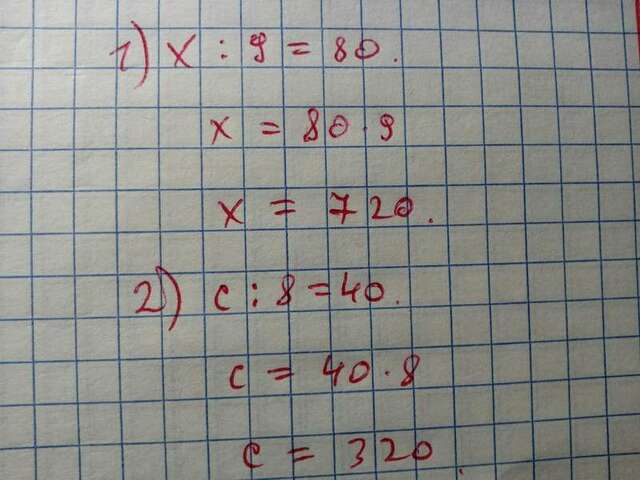 1) x : 9 = 80.
x = 80 · 9
x = 720.
2) c : 8 = 40.
c = 40 · 8
c = 320.